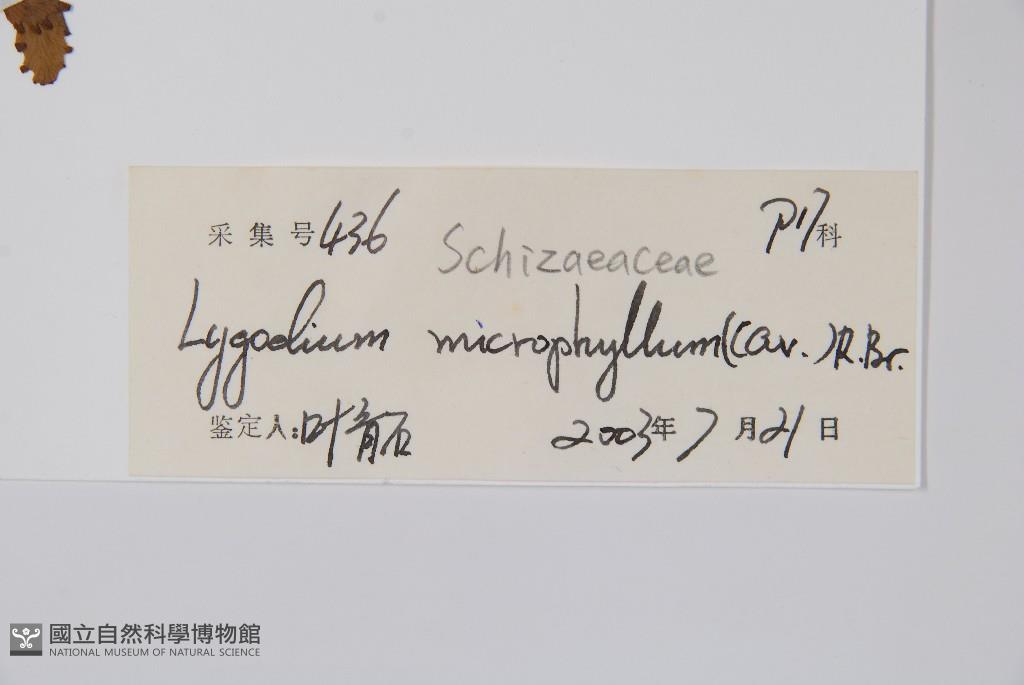 采集号436 P17科
Schizaeaceae
Lygodium microphyllum (Cav.) R.Br.
鉴定人:叶育石 2003年7月21日
國立自然科學博物館
NATIONAL MUSEUM OF NATURAL SCIENCE